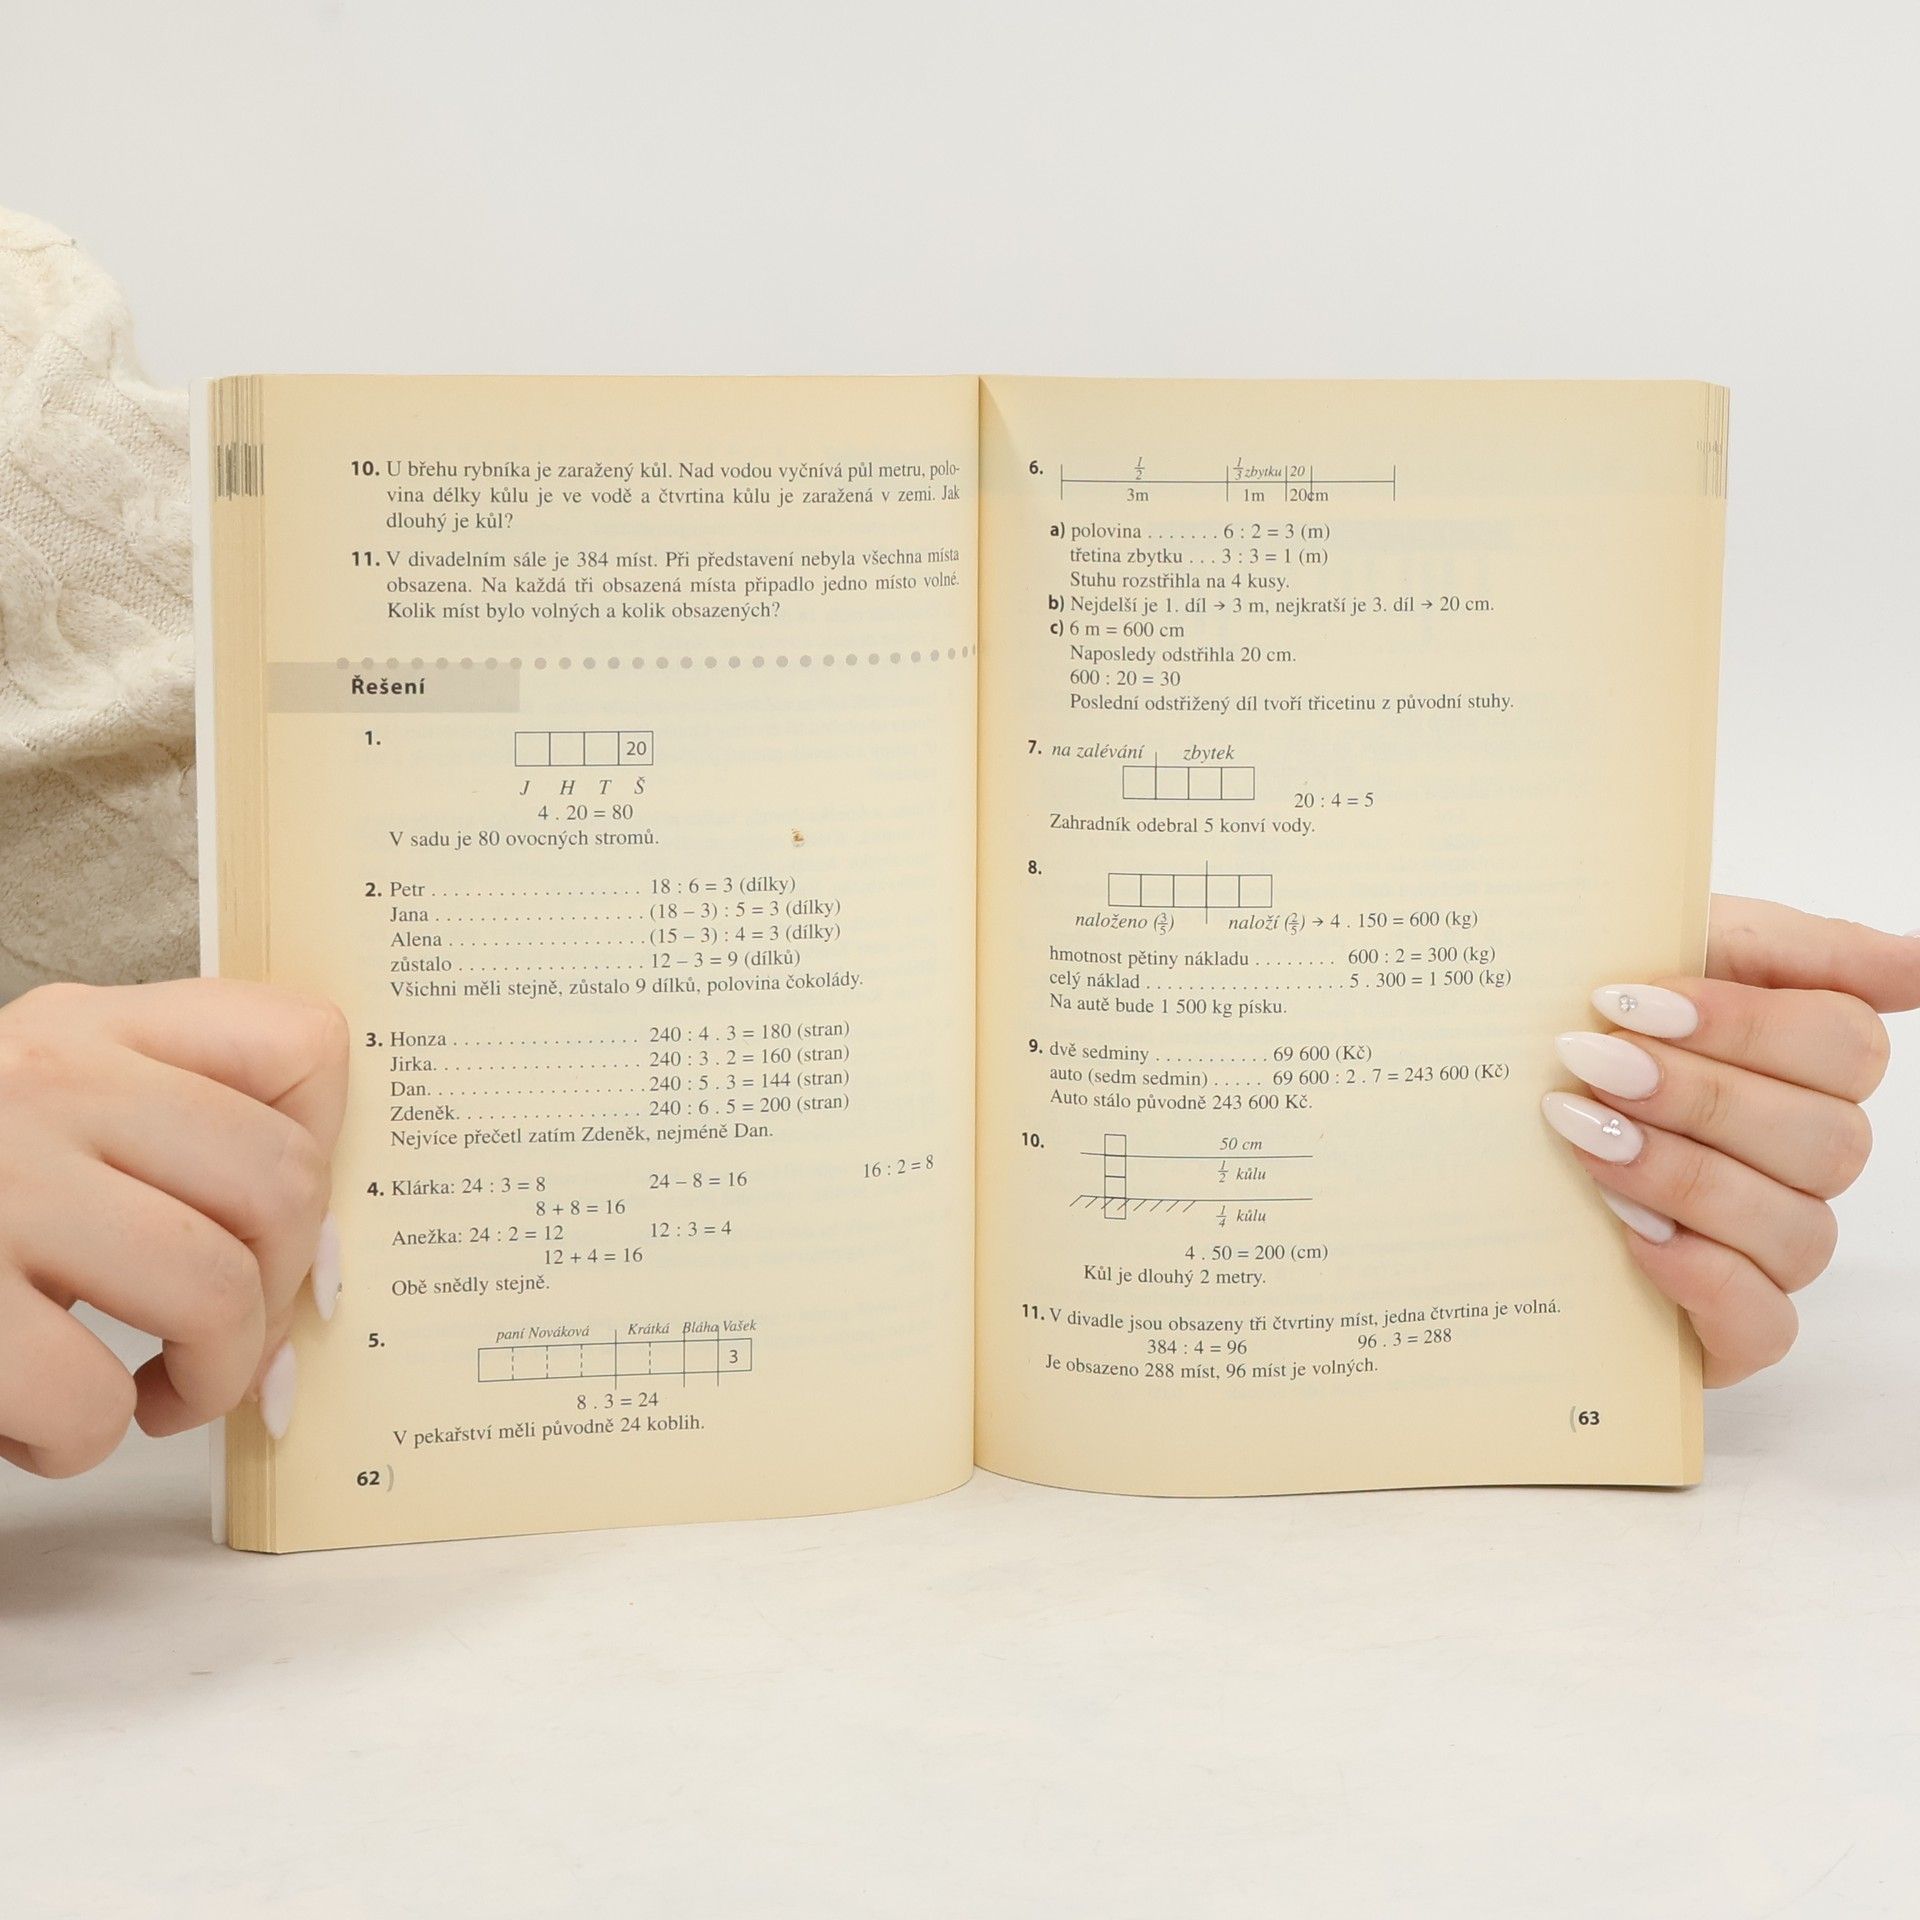 10. U břehu rybníka je zaražený kůl. Nad vodou vyčnívá půl metru, polo-
vina délky kůlu je ve vodě a čtvrtina kůlu je zaražená v zemi. Jak
dlouhý je kůl?
11. V divadelním sále je 384 míst. Při představení nebyla všechna místa
obsazena. Na každá tři obsazená místa připadlo jedno místo volné.
Kolik míst bylo volných a kolik obsazených?
Řešení
1.
20
J H T Š
4 . 20 = 80
V sadu je 80 ovocných stromů.
2. Petr . . . . . . . . . . . . . . . . . . . 18 : 6 = 3 (dílky)
Jana . . . . . . . . . . . . . . . . . . . (18 – 3) : 5 = 3 (dílky)
Alena . . . . . . . . . . . . . . . . . . (15 – 3) : 4 = 3 (dílky)
zůstalo . . . . . . . . . . . . . . . . . 12 – 3 = 9 (dílků)
Všichni měli stejně, zůstalo 9 dílků, polovina čokolády.
3. Honza . . . . . . . . . . . . . . . . . 240 : 4 . 3 = 180 (stran)
Jirka. . . . . . . . . . . . . . . . . . . 240 : 3 . 2 = 160 (stran)
Dan. . . . . . . . . . . . . . . . . . . . 240 : 5 . 3 = 144 (stran)
Zdeněk. . . . . . . . . . . . . . . . . 240 : 6 . 5 = 200 (stran)
Nejvíce přečetl zatím Zdeněk, nejméně Dan.
4. Klárka: 24 : 3 = 8 24 – 8 = 16 16 : 2 = 8
8 + 8 = 16
Anežka: 24 : 2 = 12 12 : 3 = 4
12 + 4 = 16
Obě snědly stejně.
5.
paní Nováková Krátká Bláha Vašek
3
8 . 3 = 24
V pekařství měli původně 24 koblih.
62
6.
1/2 1/3 zbytku 20
3m 1m 20cm
a) polovina . . . . . . . 6 : 2 = 3 (m)
třetina zbytku . . . 3 : 3 = 1 (m)
Stuhu rozstřihla na 4 kusy.
b) Nejdelší je 1. díl → 3 m, nejkratší je 3. díl → 20 cm.
c) 6 m = 600 cm
Naposledy odstřihla 20 cm.
600 : 20 = 30
Poslední odstřižený díl tvoří třicetinu z původní stuhy.
7. na zalévání zbytek
20 : 4 = 5
Zahradník odebral 5 konví vody.
8.
naloženo (3/5) naloží (2/5) → 4 . 150 = 600 (kg)
hmotnost pětiny nákladu . . . . . . . . 600 : 2 = 300 (kg)
celý náklad . . . . . . . . . . . . . . . . . . . 5 . 300 = 1 500 (kg)
Na autě bude 1 500 kg písku.
9. dvě sedminy . . . . . . . . . . . 69 600 (Kč)
auto (sedm sedmin) . . . . . 69 600 : 2 . 7 = 243 600 (Kč)
Auto stálo původně 243 600 Kč.
10.
50 cm
1/2 kůlu
1/4 kůlu
4 . 50 = 200 (cm)
Kůl je dlouhý 2 metry.
11. V divadle jsou obsazeny tři čtvrtiny míst, jedna čtvrtina je volná.
384 : 4 = 96 96 . 3 = 288
Je obsazeno 288 míst, 96 míst je volných.
63